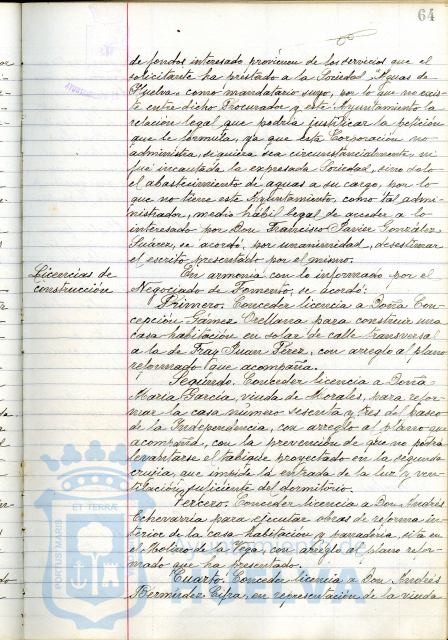 64
de fondos interesado provienen de los servicios que el
solicitante ha prestado a la Sociedad "Aguas de
Huelva" como mandatario suyo, por lo que no exis-
te entre dicho Procurador y este Ayuntamiento la
relación legal que podría justificar la petición
que se formula, ya que esta Corporación no
administra, siquiera sea circunstancialmente, ni
fué incautada la expresada Sociedad, sino solo
el abastecimiento de aguas a su cargo, por lo
que no tiene este Ayuntamiento, como tal admi-
nistrador, medio hábil legal de acceder a lo
interesado por Don Francisco Javier González
Suárez, se acordó, por unanimidad, desestimar
el escrito presentado por el mismo.
Licencias de
construcción
En armonía con lo informado por el
Negociado de Fomento, se acordó:
Primero. Conceder licencia a Doña Con-
cepción Gámez Orellana para construir una
casa habitación en solar de calle transversal
a la de Fray Juan Pérez, con arreglo al plano
reformado que acompaña.
Segundo. Conceder licencia a Doña
María García, viuda de Morales, para refor-
mar la casa número sesenta y tres del paseo
de la Independencia, con arreglo al plano que
acompaña, con la prevención de que no podrá
levantarse el tabique proyectado en la segunda
crujía, que impide la entrada de la luz y ven-
tilación suficiente del dormitorio.
Tercero. Conceder licencia a Don Andrés
Echevarría para ejecutar obras de reforma in-
terior de la casa habitación y panadería, sita en
el Molino de la Vega, con arreglo al plano refor-
mado que ha presentado.
Cuarto. Conceder licencia a Don Andrés
Bermúdez Cipa, en representación de la viuda
PORTUS MARIS
ET TERRÆ
HUELVA